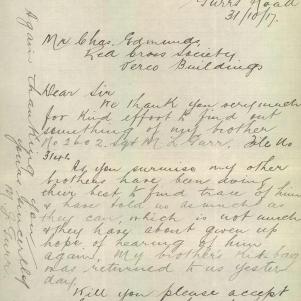 Turrs Road
31/10/17.
Mr Chas. Edmunds
Red Cross Society
Verco Buildings
Dear Sir
We thank you very much
for kind effort to find out
something of my brother
No 2602. Sgt M. L. Turr. File No
As you surmise my other
brothers have been doing
their best to find trace of him
& have told us as much as
they can, which is not much
& they have about given up
hope of hearing of him
again, My brother's kit bag
was returned to us yester
day.
Will you please accept
Again thanking you
Yours sincerely